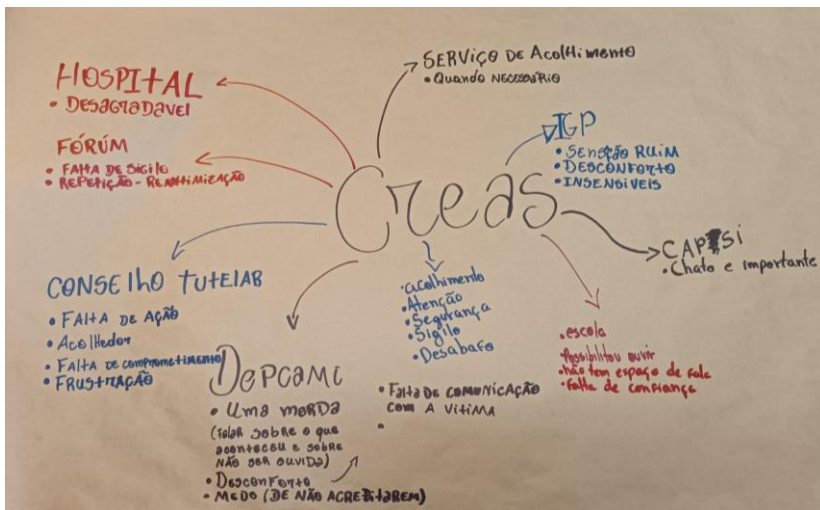 HOSPITAL
• DESAGRADAVEL
FÓRÚM
• FALTA DE SIGILO
• REPETIÇÃO - REVITIMIZAÇÃO
SERVIÇO DE AcolHimento
• Quando NECESSÁRIO
IGP
• SENSAÇÃO RUIM
• DESCONFORTO
• INSENSIVEIS
Creas
CAPSi
• Chato e importante
CONSElhO TUTElAR
• FAlTA DE AÇÃO
• Acolhedor
• FAlTA DE comprometimento
• FRUSTRAÇÃO
• acolhimento
• Atenção
• Segurança
• Sigilo
• Desabafo
• escola
• Possibilitou ouvir
• não tem espaço de fala
• falta de confiança
DEPCAMI
• Uma merda
(falar sobre o que
aconteceu e sobre
NÃO SER OUVIDA)
• Desconforto
• MEDO (DE NÃO ACREDITAREM)
• Falta DE COMUNICAÇÃO
COM A VITIMA
•